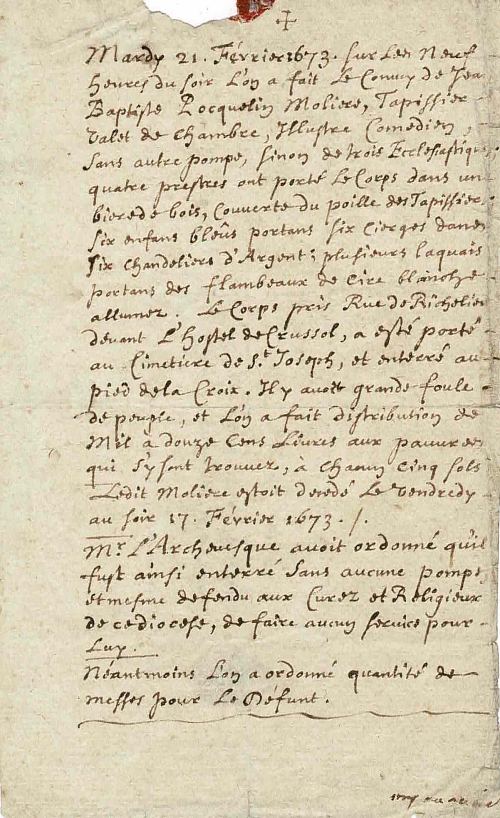 Mardy 21. Février 1673. sur Les Neuf
heures du soir L'on a fait Le Convoy de Jea
Baptiste Pocquelin Moliere, Tapissier
Valet de Chambre, Illustre Comedien,
sans autre pompe, sinon de trois Ecclesiastiques
quatre prestres ont porté Le Corps dans un
biere de bois, Couverte du poille des Tapissiers
six enfans bleûs portans six Cierges dans
six Chandeliers d'Argent; plusieurs laquais
portans des flambeaux de Cire blanche
allumez. Le Corps pris Rue de Richelieu
devant L'hostel de Crussol, a esté porté
au Cimetiere de St. Joseph, et enterré au
pied de la Croix. Il y avoit grande foule
de peuple, et L'on a fait distribution de
Mil à douze Cens Livres aux pauvres
qui s'y sont trouvez, à Chacun Cinq sols
Ledit Moliere estoit decedé Le Vendredy
au soir 17. Février 1673. /.
Mr. L'Archevesque avoit ordonné qu'il
fust ainsi enterré sans aucune pompe,
et mesme defendu aux Curez et Religieux
de ce diocese, de faire aucun service pour
Luy.
Néantmoins L'on a ordonné quantité de
messes pour Le Défunt.